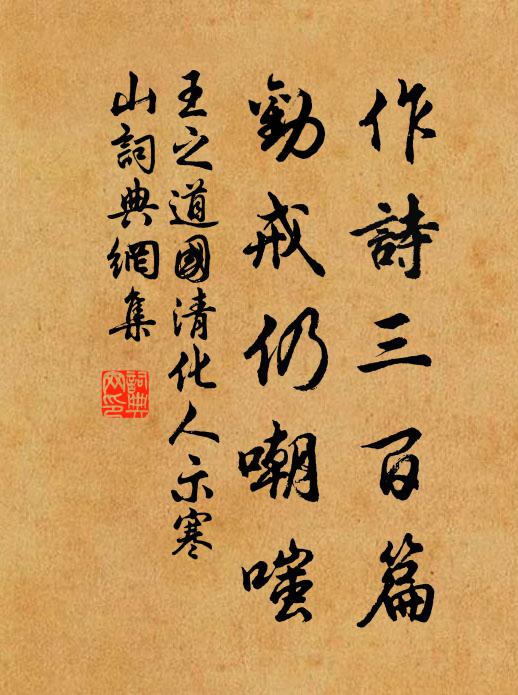 作詩三百篇
勸戒仍嘲嗤
王之道國清化人示寒
山詞典網集
詞典
网印